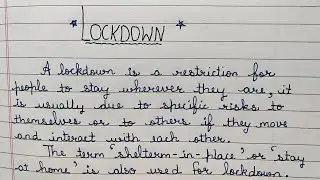 * LOCKDOWN *
A lockdown is a restriction for
people to stay wherever they are, it
is usually due to specific risks to
themselves or to others if they move
and interact with each other.
The term 'shelterm-in-place' or 'stay
at home' is also used for lockdown.